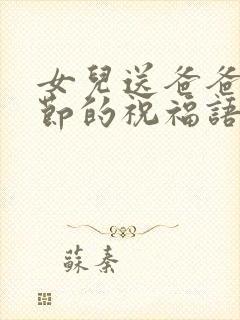 女兒送爸爸
節的祝福語
蘇秦